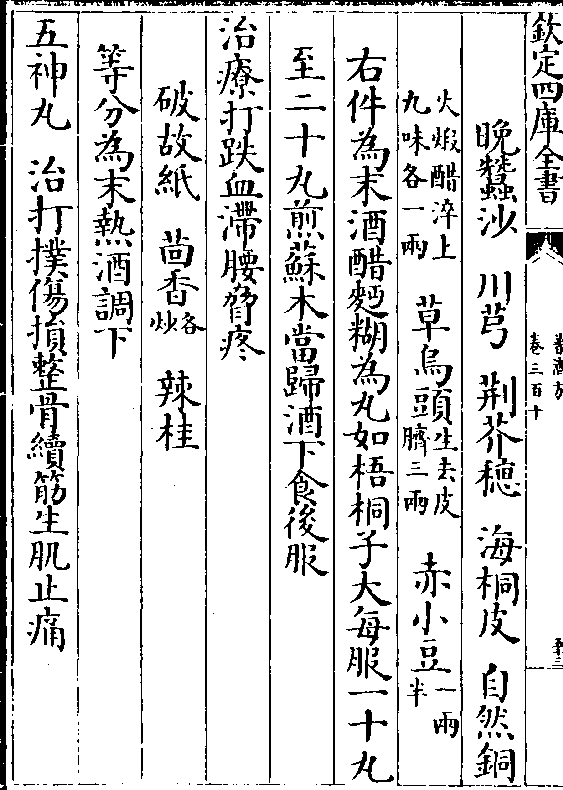 欽定四庫全書
卷三百十
晚蠶沙 川芎 荆芥穗 海桐皮 自然銅
火煅醋淬上九味各一兩 草烏頭生去皮臍三兩 赤小豆一兩半
右件為末酒醋麪糊為丸如梧桐子大每服一十丸
至二十丸煎蘇木當歸酒下食後服
治療打跌血滯腰脅疼
破故紙 茴香各炒 辣桂
等分為末熱酒調下
五神丸 治打撲傷損整骨續筋生肌止痛